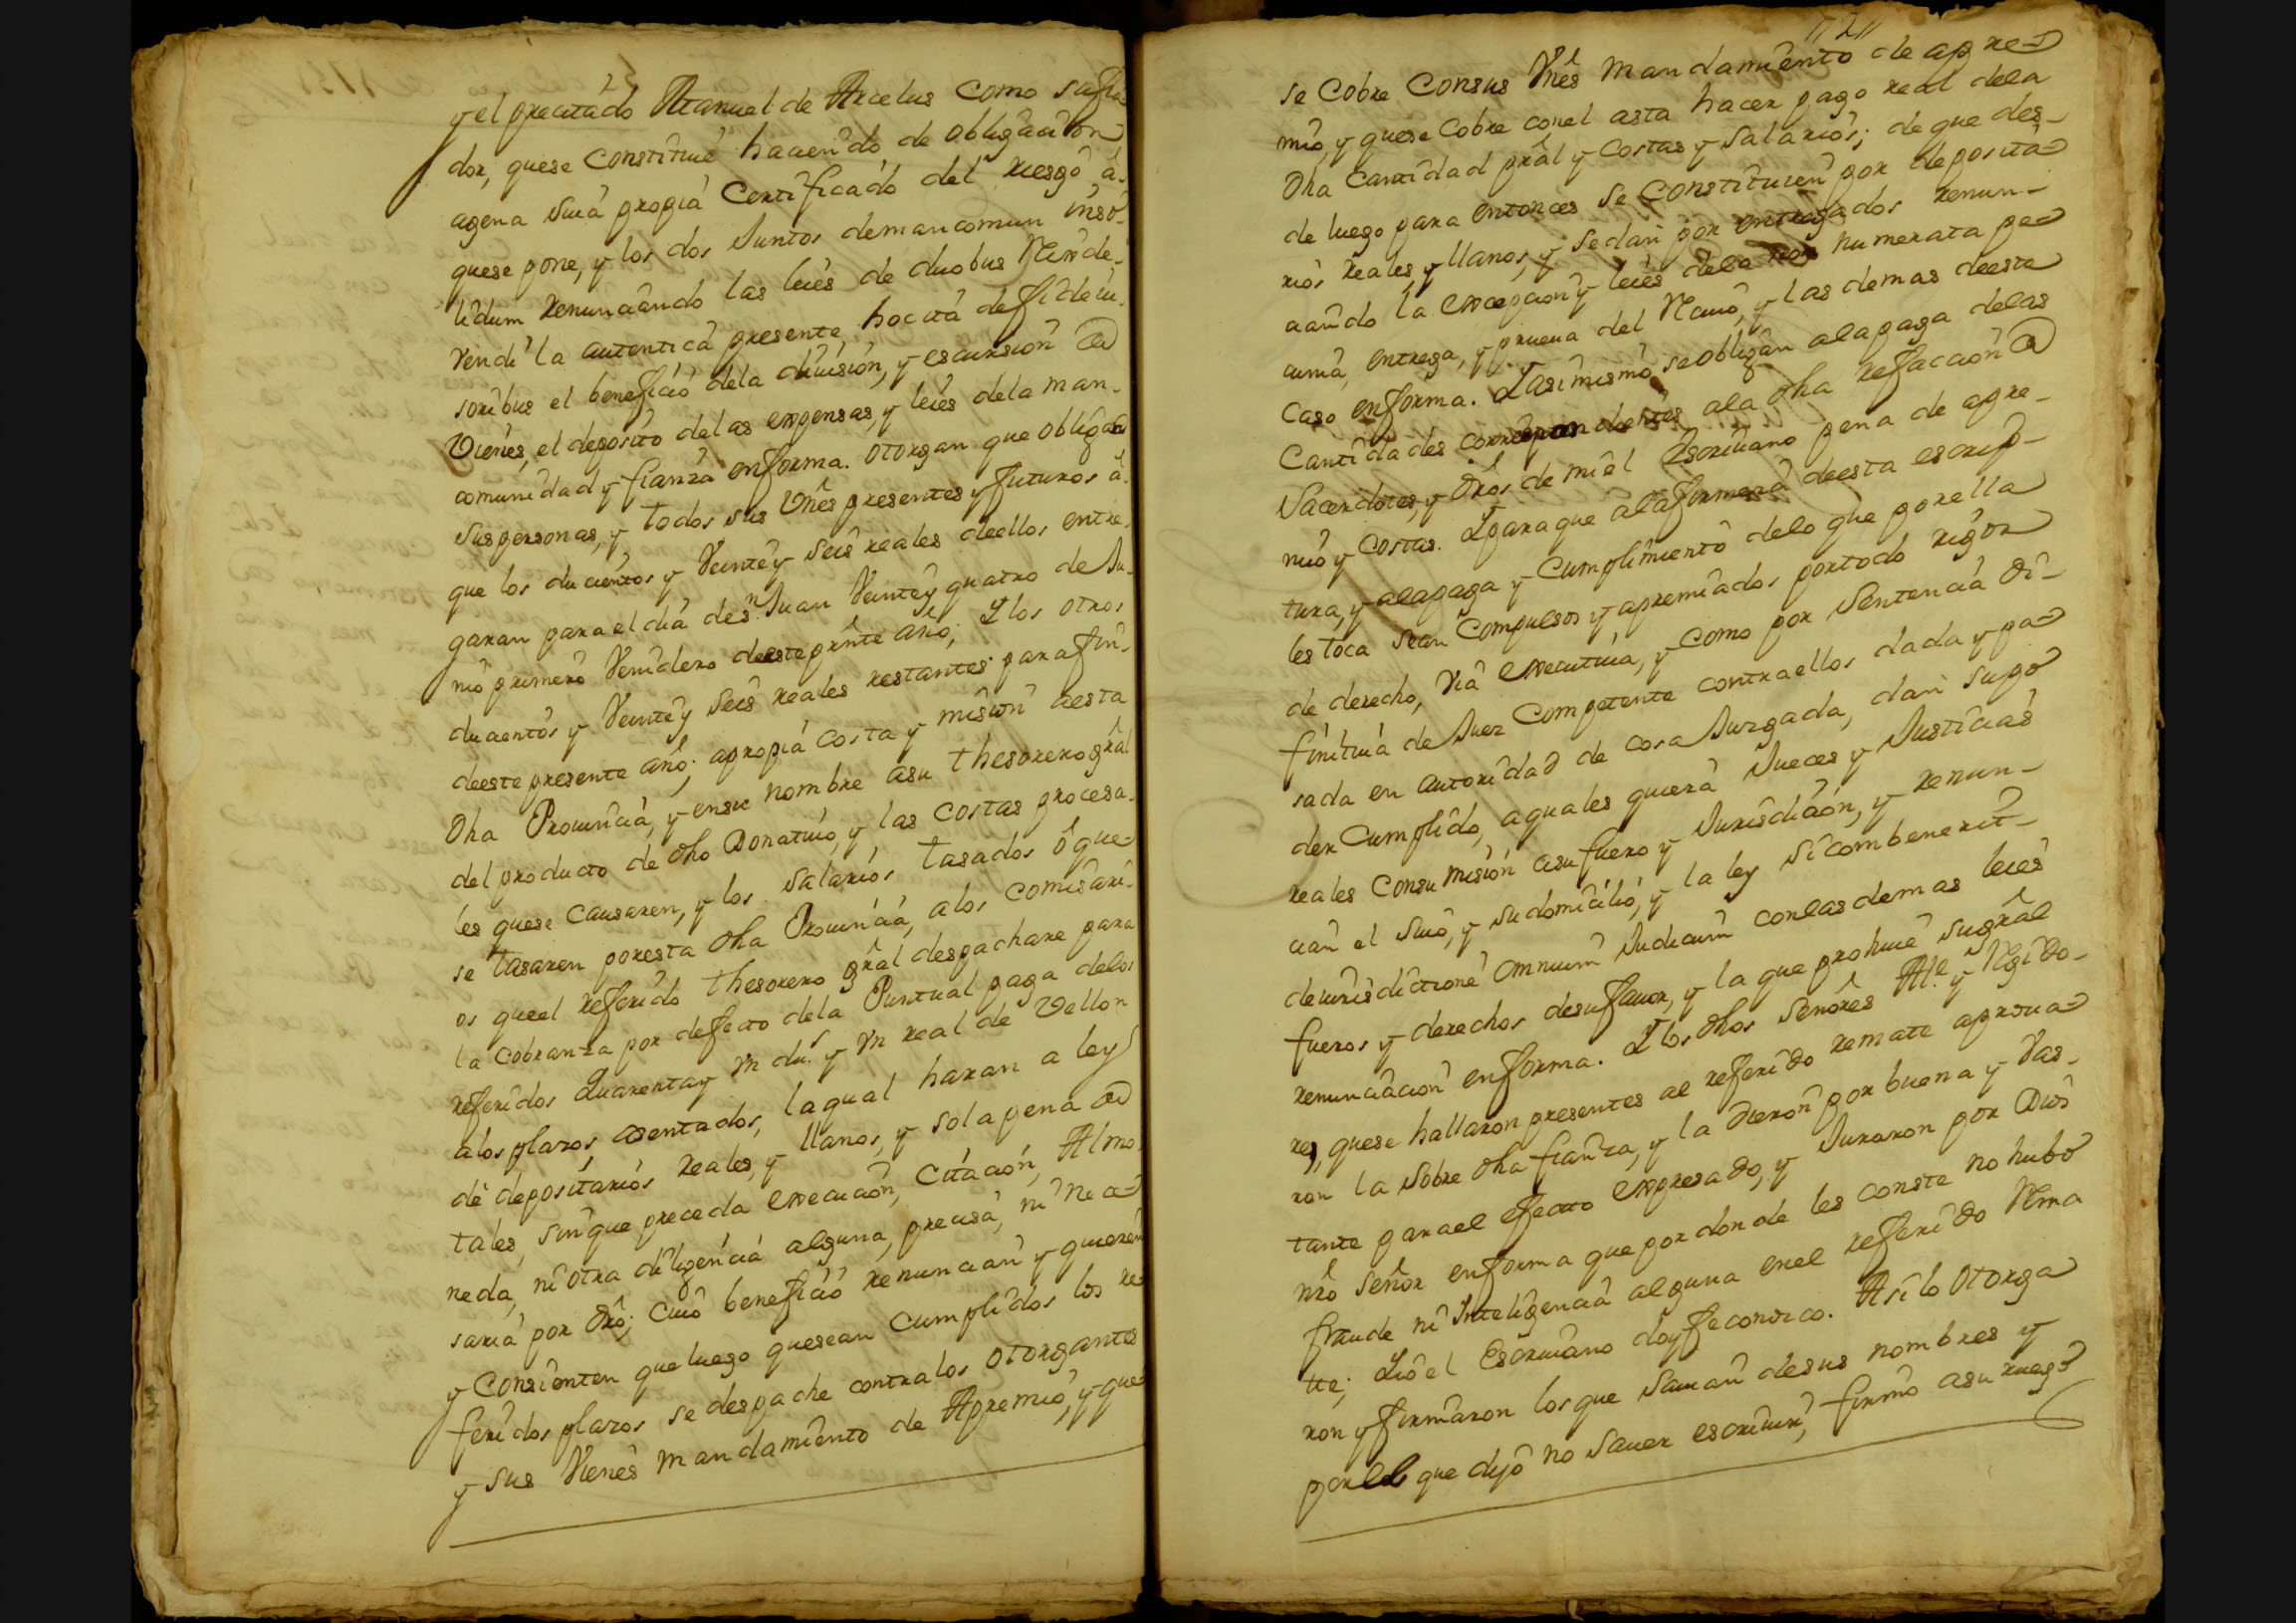 y el precitado Manuel de Arcelus como su fia-
dor, que se Constituie haciendo de obligacion
agena Suia propia Certificado del riesgo á
que se pone, y los dos Juntos demancomun inso-
lidum renunciando las leies de duobus Rex de-
vendi la autentica presente, hocita de fideiu-
soribus el beneficio dela division, y escursion de
Vienes, el deposito delas expensas, y leies dela man-
comunidad y fianza en forma. Otorgan que obligan
Sus personas, y todos sus Vnês presentes y futuros â
que los ducientos y Veinte y Seis reales deellos entre-
garan para el dia de Sn. Juan Veinte y quatro de Ju-
nio primero Venidero deeste prnte año; Y los otros
ducientos y Veinte y Seis reales restantes para fin
deeste presente año; apropia costa y mision aesta
Dha Provincia, y ensu nombre asu thesorero grâl
del producto de dho Donativo, y las costas procesa-
les quese Causaren, y los Salarios tasados ô que
se tasaren poresta dha Provincia, alos comisari-
os queel referido thesorero grâl despachare para
la Cobranza por defecto dela Puntual paga delos
referidos Quarenta y Vn dus. y Vn real de Vellon
alos plazos, asentados, laqual haran a ley
dè depositarios reales, y llanos, y sola pena de
tales, sin que preceda execucion, Citacion, Almo-
neda, ni otra diligencia alguna, precisa, ni nece-
saria por dro; Cuio beneficio renuncian y quieren
y Consienten que luego quesean Cumplidos los re-
feridos plazos se despache contra los otorgantes
y sus Vienes mandamiento de Apremio, y que
"2"
se Cobre Consus Vnês mandamiento de apre-
mio, y quese Cobre conel asta hacer pago real dela
Dha Cantidad prâl y Costas y Salarios; de que des-
de luego para entonces Se Constituien por deposita-
rios reales, y llanos, y sedan por entregados renun-
ciando la excepcion y leies dela non numerata pe-
cunia, entrega, y prueva del Recivo, y las demas deeste
Caso enforma. Y asi mismo se obligan ala paga delas
Cantidades correspondientes ala dha refaccion de
Sacerdotes, y dros de mi el Escrivano pena de apre-
mio y Costas. Y para que alafirmeza deesta escrip-
tura, y alapaga y Cumplimiento delo que porella
les toca Sean Compulsos y apremiados portodo rigor
de derecho, Via executiva, y como por Sentencia di-
finitiva de Juez Competente contraellos dada y pa-
sada en autoridad de cosa Juzgada, dan Supo-
der Cumplido, aquales quiera Jueces y Justicias
reales Consu mision asu fuero y Jurisdicion, y renun-
cian el Suio, y sudomicilio, y la ley Si combenerit
deiurisdictione Omnium Judicum conlas demas leies
fueros y derechos desufavor, y la que prohive Sugrâl
renunciacion enforma. Y los dhos Señores Ale. y Regido-
res, quese hallaron presentes al referido remate aprova-
ron la Sobre dha fianza, y la dieron por buena y Vas-
tante parael efecto expresado, y Juraron por Dios
nrô Señor enforma que por donde les conste no hubo
fraude ni Inteligencia alguna enel referido Rema
tte; Yo el Escrivano doy fe conozco. Asi lo Otorga
ron y firmaron los que Savian desus nombres y
por el que dijo no Saver escrivir, firmo asu ruego